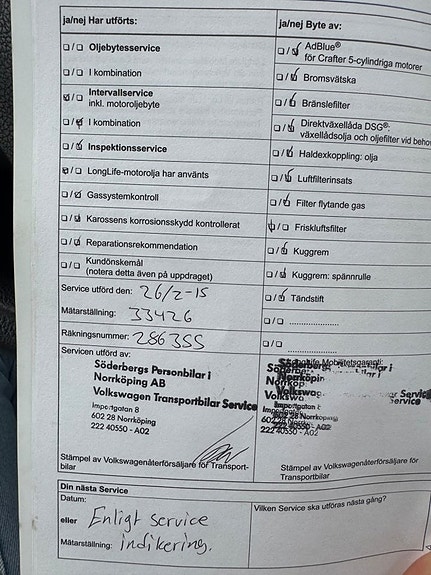 ja/nej Har utförts:
Oljebytesservice
I kombination
Intervallservice
inkl. motoroljebyte
I kombination
Inspektionsservice
LongLife-motorolja har använts
Gassystemkontroll
Karossens korrosionsskydd kontrollerat
Reparationsrekommendation
Kundönskemål
(notera detta även på uppdraget)
Service utförd den: 26/2-15
Mätarställning: 33426
Räkningsnummer: 286355
Servicen utförd av:
Söderbergs Personbilar i
Norrköping AB
Volkswagen Transportbilar Service
Importgatan 8
602 28 Norrköping
222 40550 - A02
Stämpel av Volkswagenåterförsäljare för Transport-
bilar
ja/nej Byte av:
AdBlue®
för Crafter 5-cylindriga motorer
Bromsvätska
Bränslefilter
Direktväxellåda DSG®:
växellådsolja och oljefilter vid beho
Haldexkoppling: olja
Luftfilterinsats
Filter flytande gas
Friskluftsfilter
Kuggrem
Kuggrem: spännrulle
Tändstift
....................
....................
LongLife Mobilitetsgaranti:
Söderbergs
Norrköping
Volkswag
Service
Importgatan 8
602 28 Norrköping
222 40550 - A02
Stämpel av Volkswagenåterförsäljare för
Transportbilar
Din nästa Service
Datum:
eller Enligt service
Mätarställning: indikering.
Vilken Service ska utföras nästa gång?